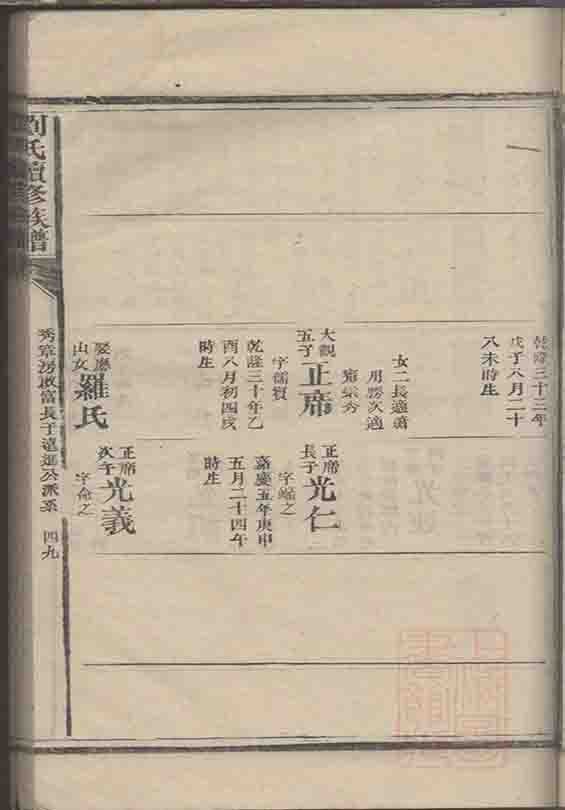 乾隆三十三年
戊子八月二十
八未時生
女二長適蕭
用勝次適
大觀
五子
正席
字儒賓
乾隆三十年乙
酉八月初四戌
時生
娶應
山女
羅氏
正席
長子
光仁
嘉慶五年庚申
五月二十四午
時生
正席
次子
光義
字命之
劉氏續修族譜
秀章房啟富長子遠進公派系
四九